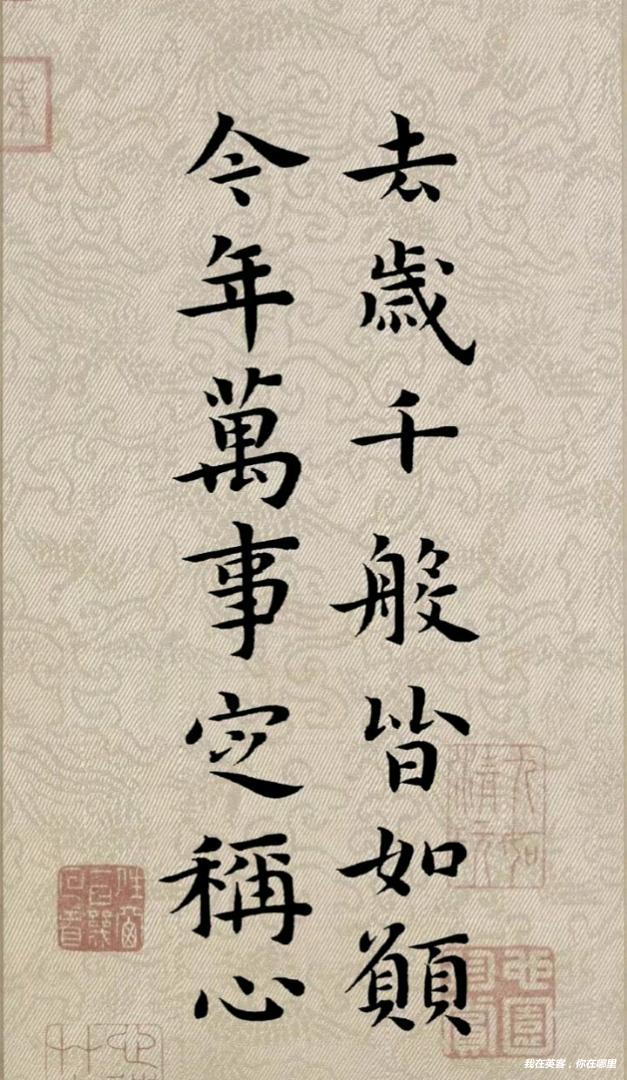 去歲千般皆如願
今年萬事定稱心
我在英客；你在哪里